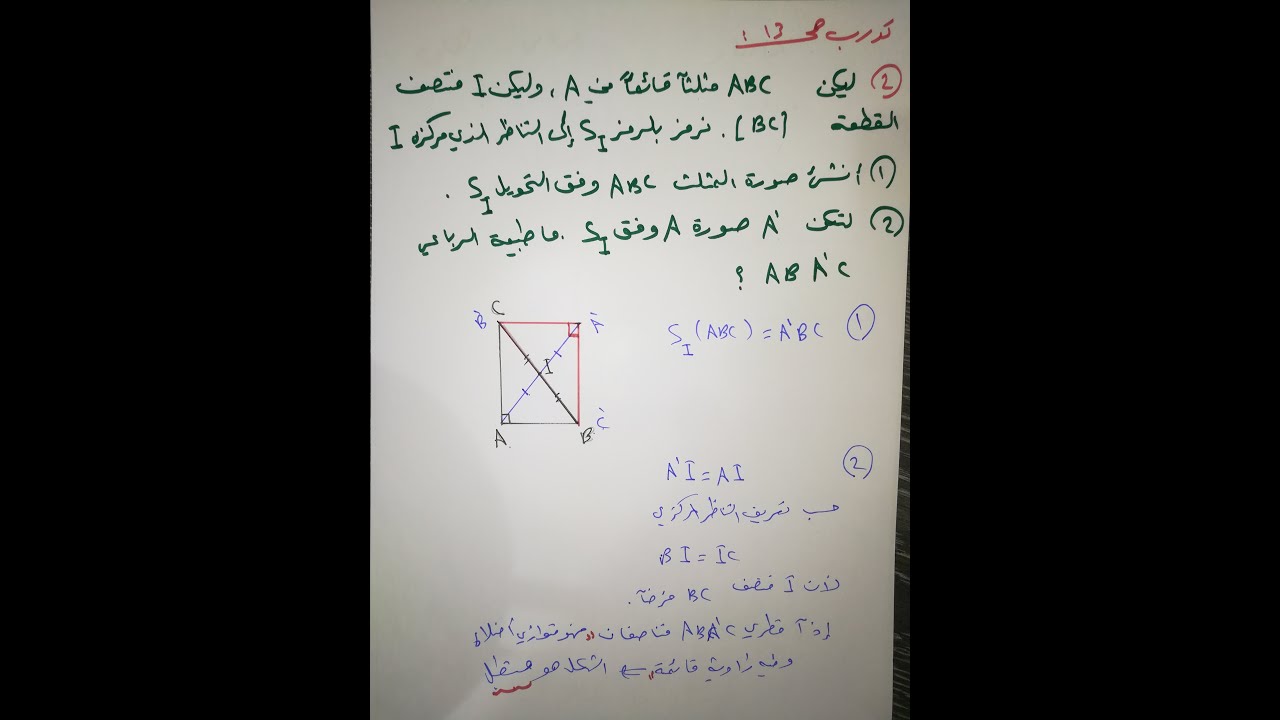 تدرب صـ 113 :
② ليكن ABC مثلثاً قائماً في A ، وليكن I منتصف
القطعة [BC] . نرمز بالرمز S_I إلى التناظر الذي مركزه I
① أنشئ صورة المثلث ABC وفق التحويل S_I .
② لتكن A' صورة A وفق S_I . ما طبيعة الرباعي
ABA'C ؟
C
B'
A'
I
A
B
C'
① S_I(ABC) = A'BC
②
A'I = AI
حسب تعريف التناظر المركزي
BI = IC
لأن I منتصف BC فرضاً .
إذاً قطري ABA'C متناصفان ,, فهو متوازي أضلاع
وفيه زاوية قائمة ,, ⇐ الشكل هو مستطيل